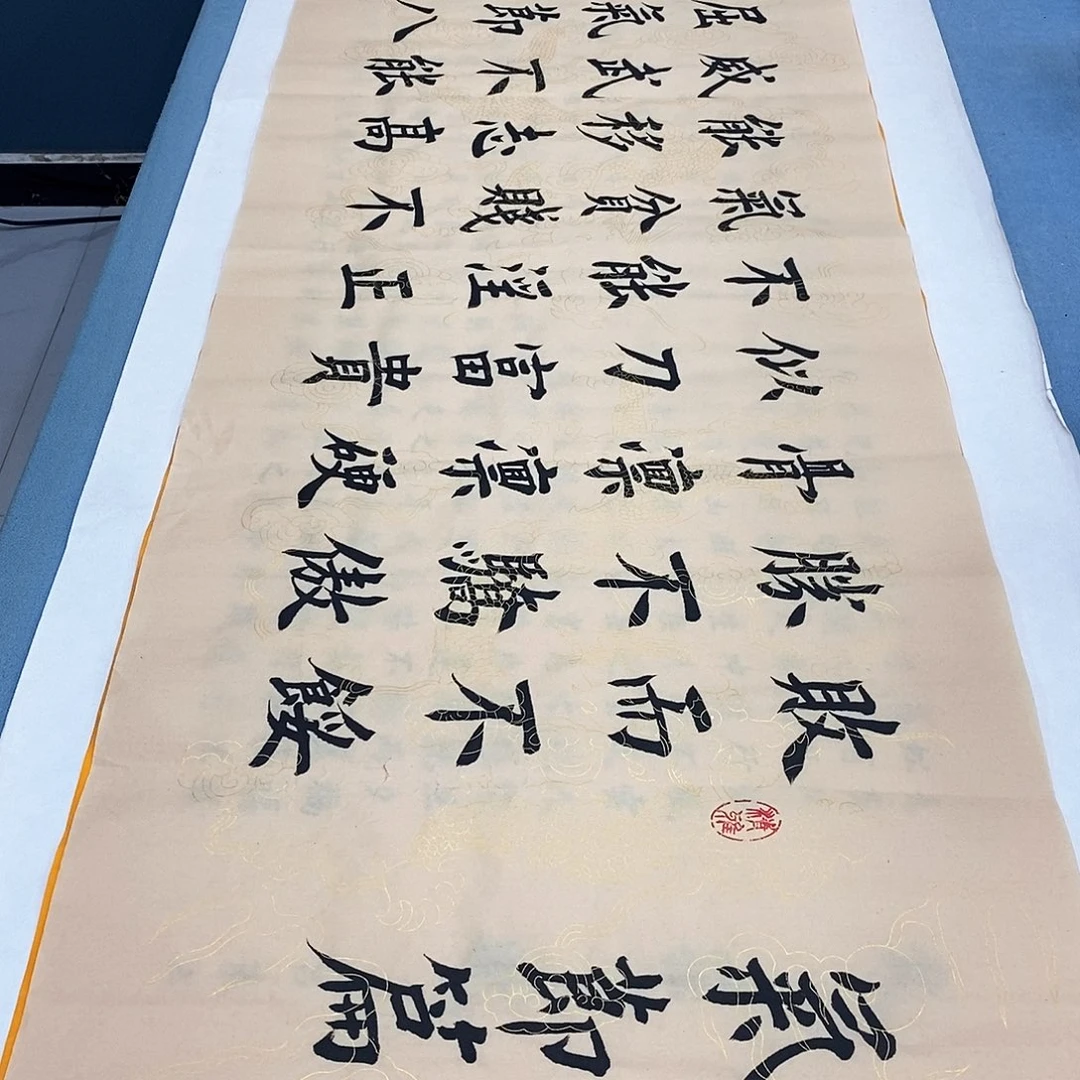 氣節篇
敗而不餒
勝不驕傲
骨凜凜硬
似刀富貴
不能淫正
氣貧賤不
能移志高
威武不能
屈氣節八